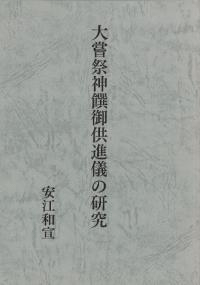 大嘗祭神饌御供進儀の研究
安江和宣